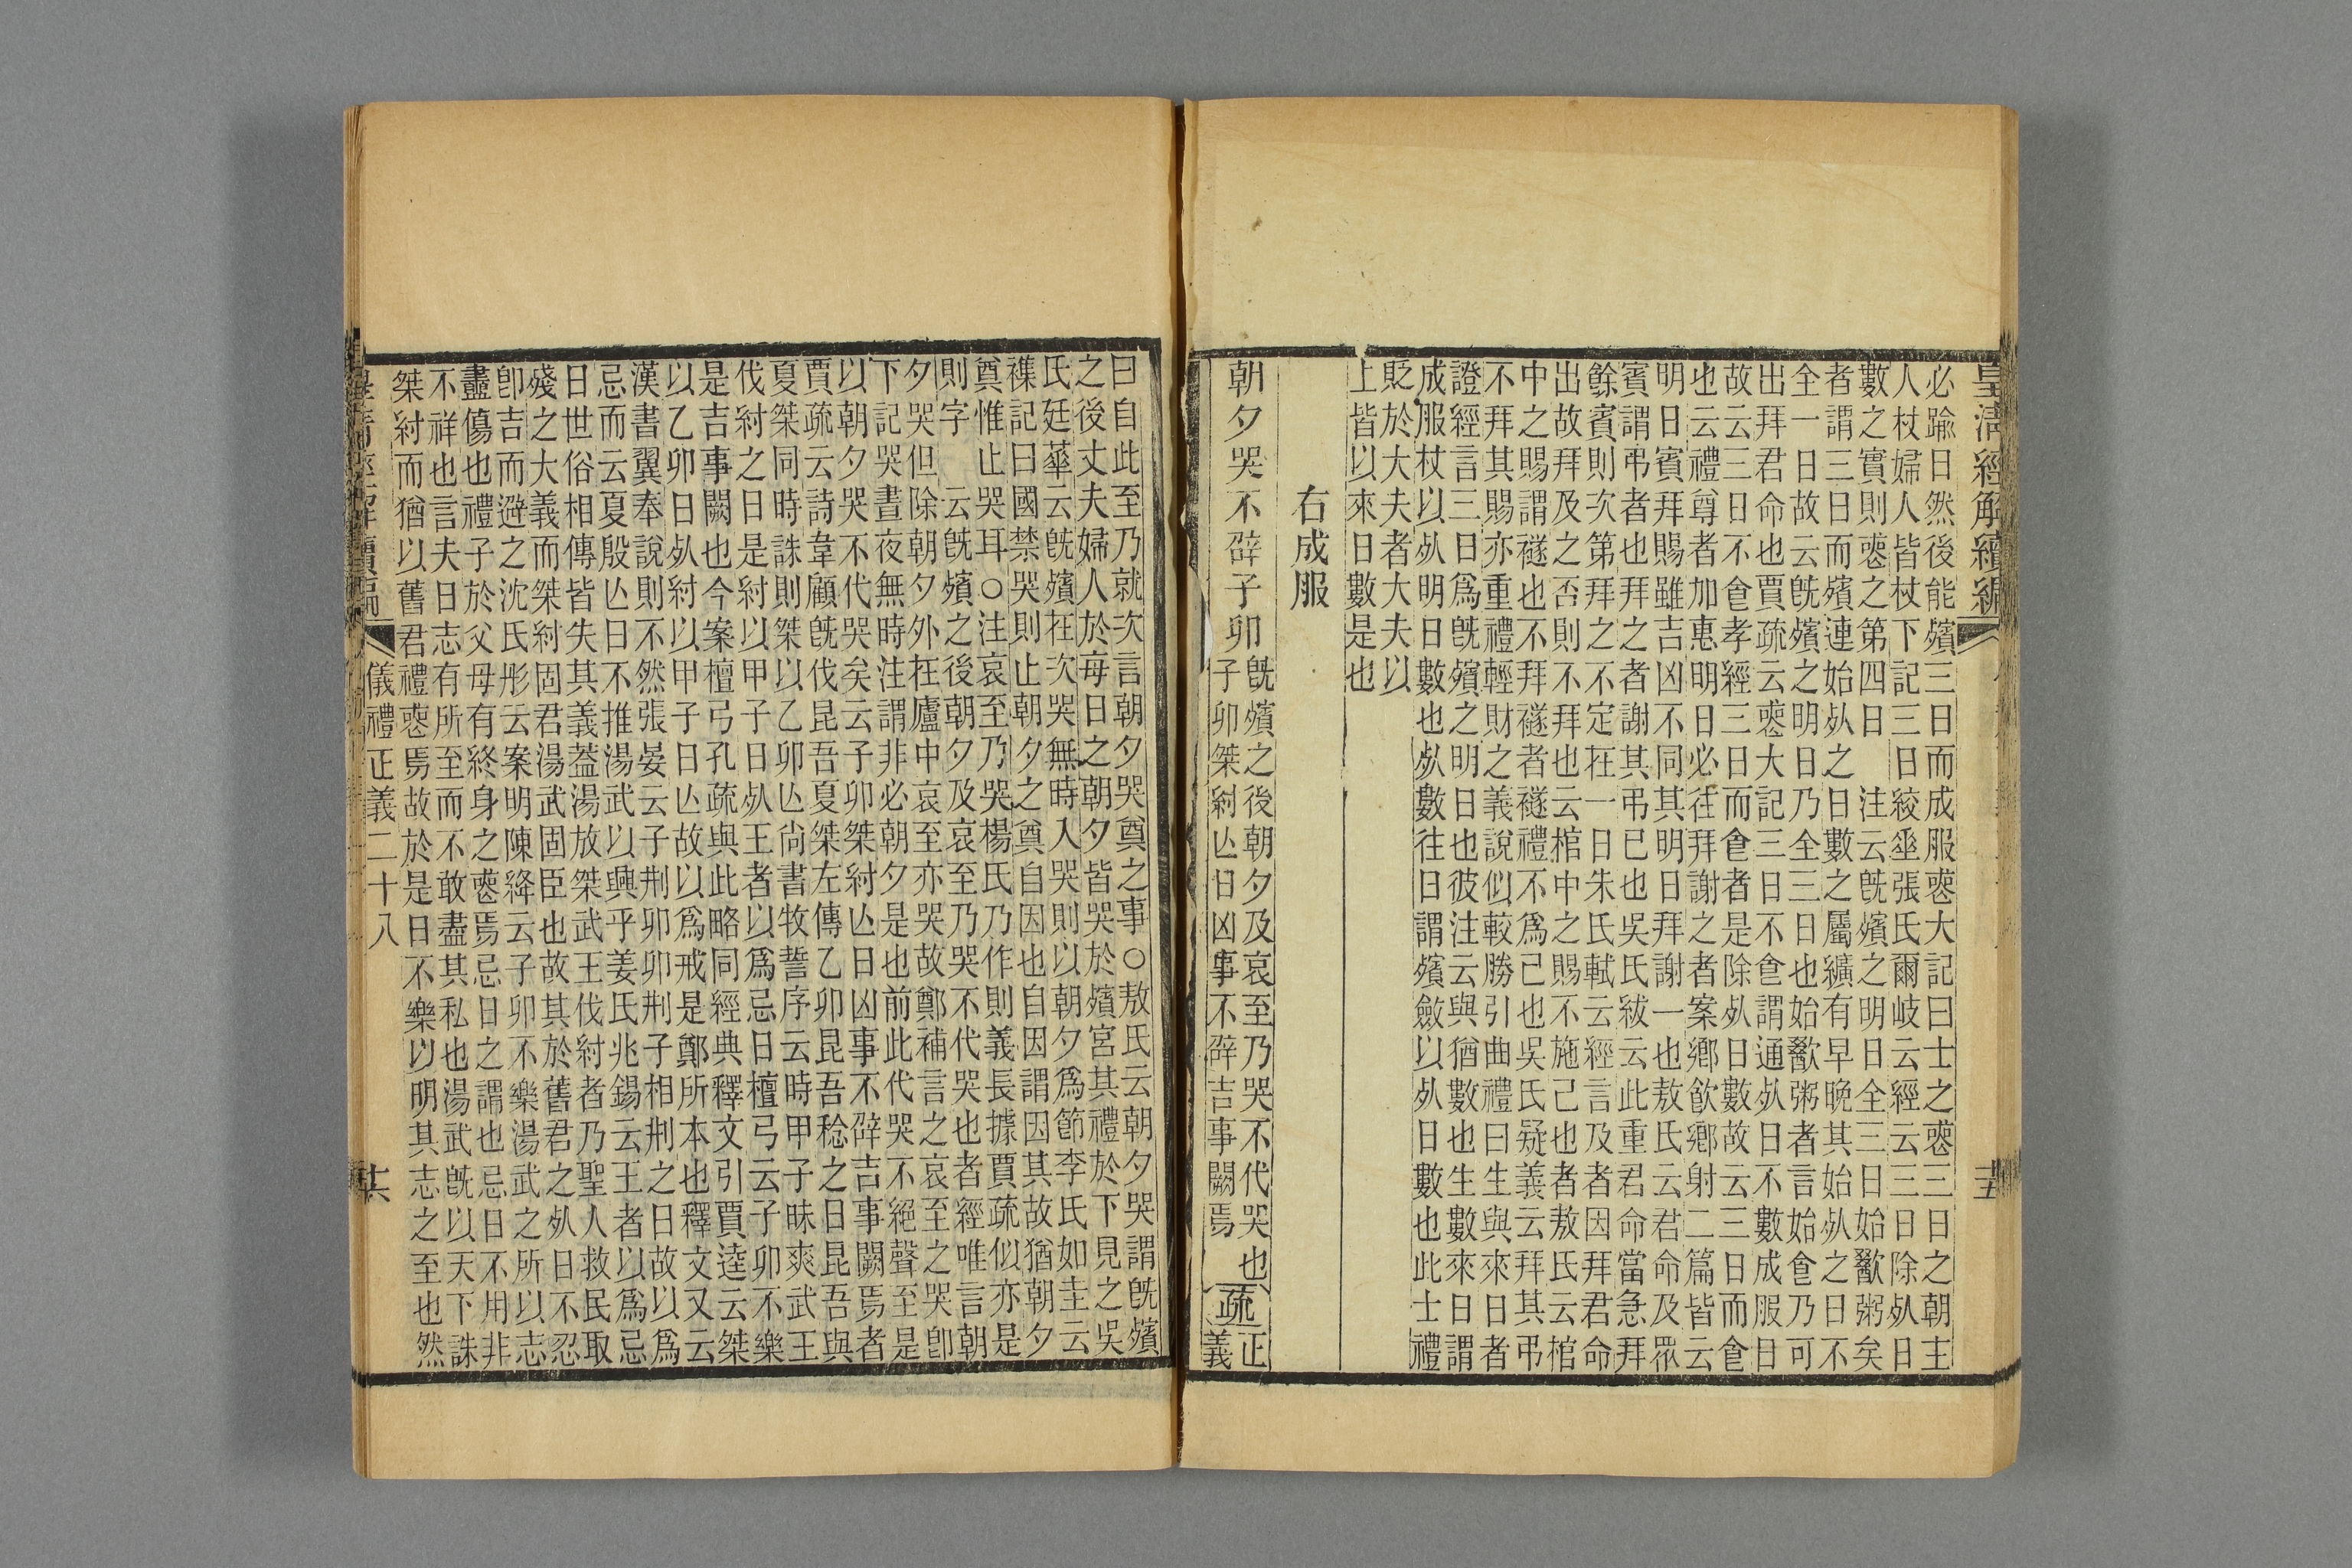 皇淸經解續編
十五
必踰日然後能殯三日而成服䘮大記曰士之䘮三日之朝主
人杖婦人皆杖下記三日絞垂張氏爾岐云經云三日除𣦸日
數之實則䘮之第四日　注云旣殯之明日全三日始歠粥矣
者謂三日而殯連始𣦸之日數之屬纊有早晚其始𣦸之日不
全一日故云旣殯之明日乃全三日也始歠粥者言始食乃可
出拜君命也賈疏云䘮大記三日不食謂通𣦸日不數成服日
故云三日不食孝經三日而食者是除𣦸日數故云三日而食
也云禮尊者加惠明日必往拜謝之者案鄉飮鄉射二篇皆云
明日賓拜賜雖吉凶不同其明日拜謝一也敖氏云君命及眾
賓謂弔者也拜之者謝其弔已也吳氏紱云此重君命當急拜
餘賓則次第拜之不定在一日朱氏軾云經言及者因拜君命
出故拜及之否則不拜也云棺中之賜不施己也者敖氏云棺
中之賜謂襚也不拜襚者襚禮不爲己也吳氏疑義云拜其弔
不拜其賜亦重禮輕財之義說似較勝引曲禮曰生與來日者
證經言三日爲旣殯之明日也彼注云與猶數也生數來日謂
成服杖以𣦸明日數也𣦸數往日謂殯斂以𣦸日數也此士禮
貶於大夫者大夫以
上皆以來日數是也
右成服
朝夕哭不辟子卯
旣殯之後朝夕及哀至乃哭不代哭也
子卯桀紂亾日凶事不辟吉事闕焉
疏
正
義
曰自此至乃就次言朝夕哭奠之事○敖氏云朝夕哭謂旣殯
之後丈夫婦人於每日之朝夕皆哭於殯宮其禮於下見之吳
氏廷華云旣殯在次哭無時入哭則以朝夕爲節李氏如圭云
襍記曰國禁哭則止朝夕之奠自因也自因謂因其故猶朝夕
奠惟止哭耳○注哀至乃哭楊氏乃作則義長據賈疏似亦是
則字　云旣殯之後朝夕及哀至乃哭不代哭也者經唯言朝
夕哭但除朝夕外在廬中哀至亦哭故鄭補言之哀至之哭卽
下記哭晝夜無時注謂非必朝夕是也前此代哭不絕聲至是
以朝夕哭不代哭矣云子卯桀紂亾日凶事不辟吉事闕焉者
賈疏云詩韋顧旣伐昆吾夏桀左傳乙卯昆吾稔之日昆吾與
夏桀同時誅則桀以乙卯亾尙書牧誓序云時甲子昧爽武王
伐紂之日是紂以甲子日𣦸王者以爲忌日檀弓云子卯不樂
是吉事闕也今案檀弓孔疏與此略同經典釋文引賈逵云桀
以乙卯日𣦸紂以甲子日亾故以爲戒是鄭所本也釋文又云
漢書翼奉說則不然張晏云子刑卯卯刑子相刑之日故以爲
忌而云夏殷亾日不推湯武以興乎姜氏兆錫云王者以爲忌
日世俗相傳皆失其義葢湯放桀武王伐紂者乃聖人救民取
殘之大義而桀紂固君湯武固臣也故其於舊君之𣦸日不忍
卽吉而避之沈氏彤云案明陳絳云子卯不樂湯武之所以志
盡傷也禮子於父母有終身之䘮焉忌日之謂也忌日不用非
不祥也言夫日志有所至而不敢盡其私也湯武旣以天下誅
桀紂而猶以舊君禮䘮焉故於是日不樂以明其志之至也然
皇淸經解續編
儀禮正義二十八
十六